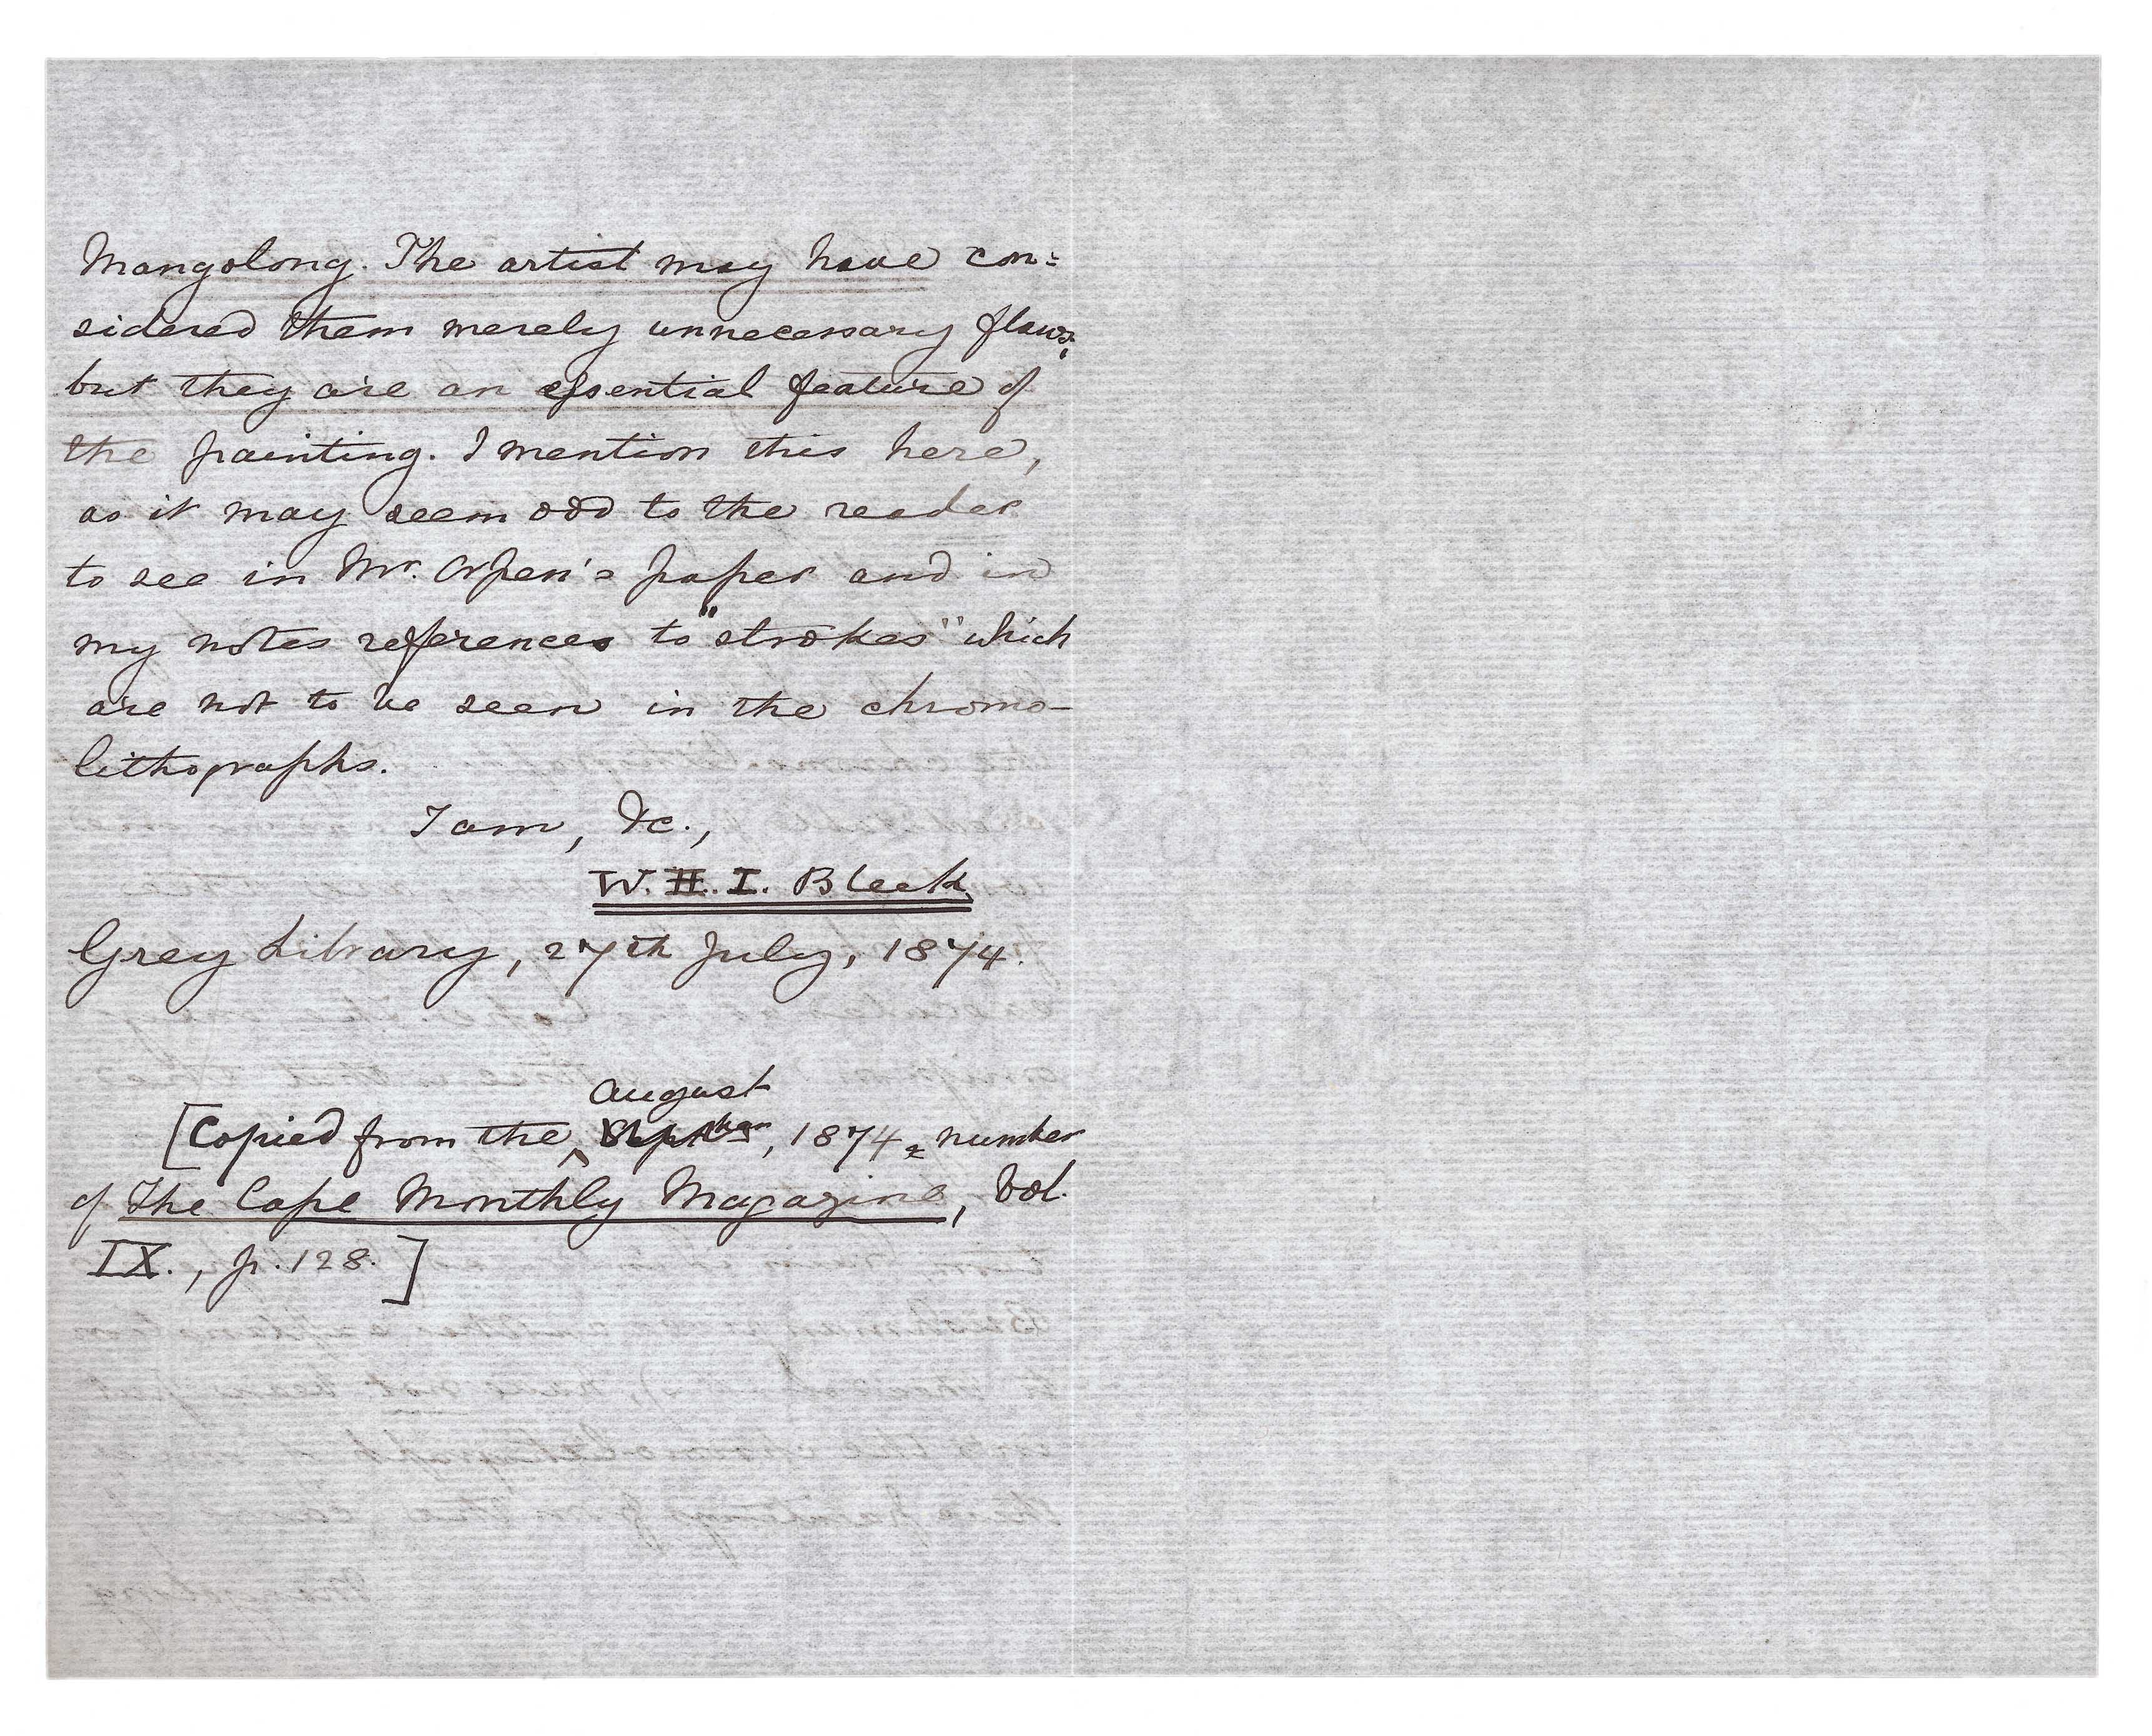 Mangolong. The artist may have con=
sidered them merely unnecessary flaws;
but they are an essential feature of
the painting. I mention this here,
as it may seem odd to the reader
to see in Mr. Orpen's paper and in
my notes references to "strokes" which
are not to be seen in the chromo-
lithographs.
I am, &c.,
W. H. I. Bleek.
Grey Library, 27th July, 1874.
August
[Copied from the ‸ , 1874, number
of The Cape Monthly Magazine, Vol.
IX., p. 128.]